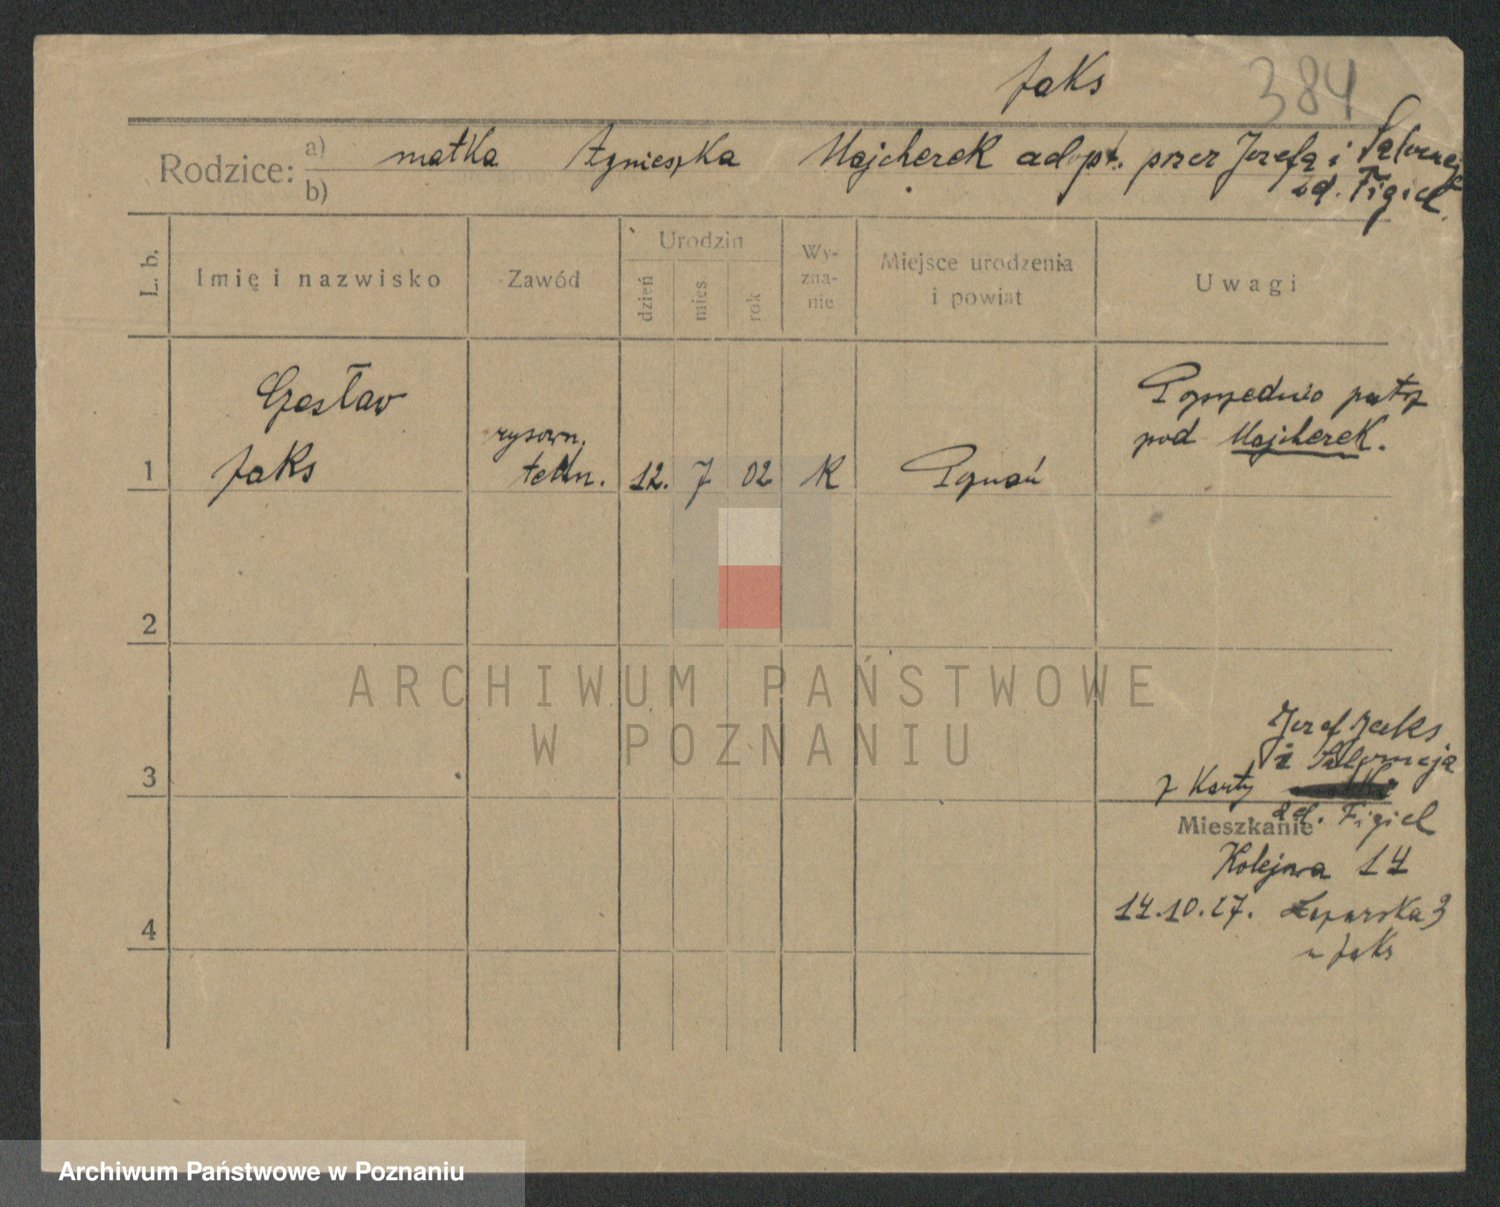 Jaks 384
Rodzice: a) matka Agnieszka Majcherek adopt. przez Józefa i Salomeję
b) zd. Figiel
L. b. Imię i nazwisko Zawód Urodzin dzień mies rok Wy-zna-nie Miejsce urodzenia i powiat Uwagi
Czesław Poprzednio patrz
rysown. pod Majcherek.
1 Jaks techn. 12. 7 02 K Poznań
2
Józef Jaks
i Salomeja
3 z Karty
zd. Figiel
Mieszkanie
Kolejowa 14
4 14.10.27. 3
u Jaks
ARCHIWUM PAŃSTWOWE
W POZNANIU
Archiwum Państwowe w Poznaniu